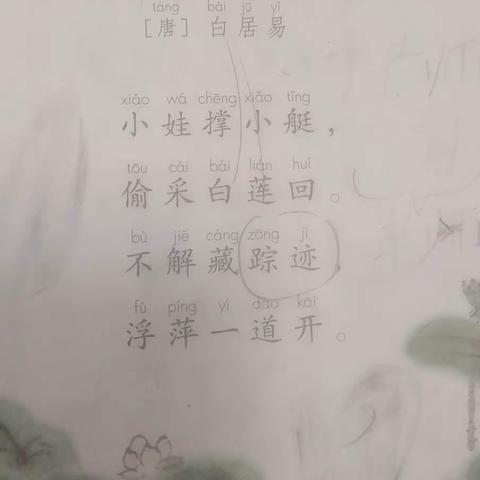 táng bái jū yì
［唐］白居易
xiǎo wá chēng xiǎo tǐng
小娃撑小艇，
tōu cǎi bái lián huí
偷采白莲回。
bù jiě cáng zōng jì
不解藏踪迹，
fú píng yí dào kāi
浮萍一道开。